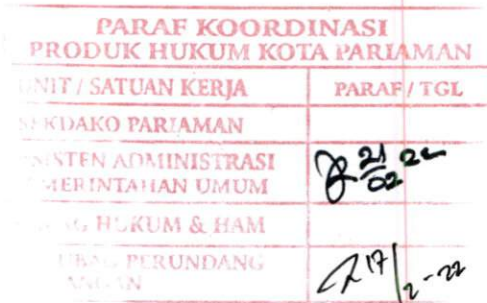 PARAF KOORDINASI
PRODUK HUKUM KOTA PARIAMAN
UNIT / SATUAN KERJA PARAF / TGL
SEKDAKO PARIAMAN
ASISTEN ADMINISTRASI
PEMERINTAHAN UMUM
21/02 22
HUKUM & HAM
PERUNDANG
17/2-22